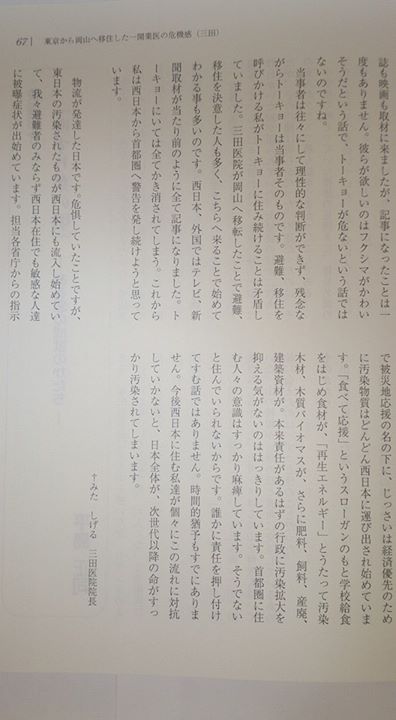 67｜　東京から岡山へ移住した一開業医の危機感（三田）
誌も映画も取材に来ましたが、記事になったことは一
度もありません。彼らが欲しいのはフクシマがかわい
そうだという話で、トーキョーが危ないという話では
ないのですね。
当事者は往々にして理性的な判断ができず、残念な
がらトーキョーは当事者そのものです。避難、移住を
呼びかける私がトーキョーに住み続けることは矛盾し
ていました。三田医院が岡山へ移転したことで避難、
移住を決意した人も多く、こちらへ来ることで始めて
わかる事も多いのです。西日本、外国ではテレビ、新
聞取材が当たり前のように全て記事になりました。ト
ーキョーにいては全てかき消されてしまう。これから
私は西日本から首都圏へ警告を発し続けようと思って
います。
物流が発達した日本です。危惧していたことですが、
東日本の汚染されたものが西日本にも流入し始めてい
て、我々避難者のみならず西日本在住でも敏感な人達
に被曝症状が出始めています。担当各省庁からの指示
で被災地応援の名の下に、じっさいは経済優先のため
に汚染物質はどんどん西日本に運び出され始めていま
す。「食べて応援」というスローガンのもと学校給食
をはじめ食材が、「再生エネルギー」とうたって汚染
木材、木質バイオマスが、さらに肥料、飼料、産廃、
建築資材が。本来責任があるはずの行政に汚染拡大を
抑える気がないのははっきりしています。首都圏に住
む人々の意識はすっかり麻痺しています。そうでない
と住んでいられないからです。誰かに責任を押し付け
てすむ話ではありません。時間的猶予もすでにありま
せん。今後西日本に住む私達が個々にこの流れに対抗
していかないと、日本全体が、次世代以降の命がすっ
かり汚染されてしまいます。
†みた　しげる　三田医院院長